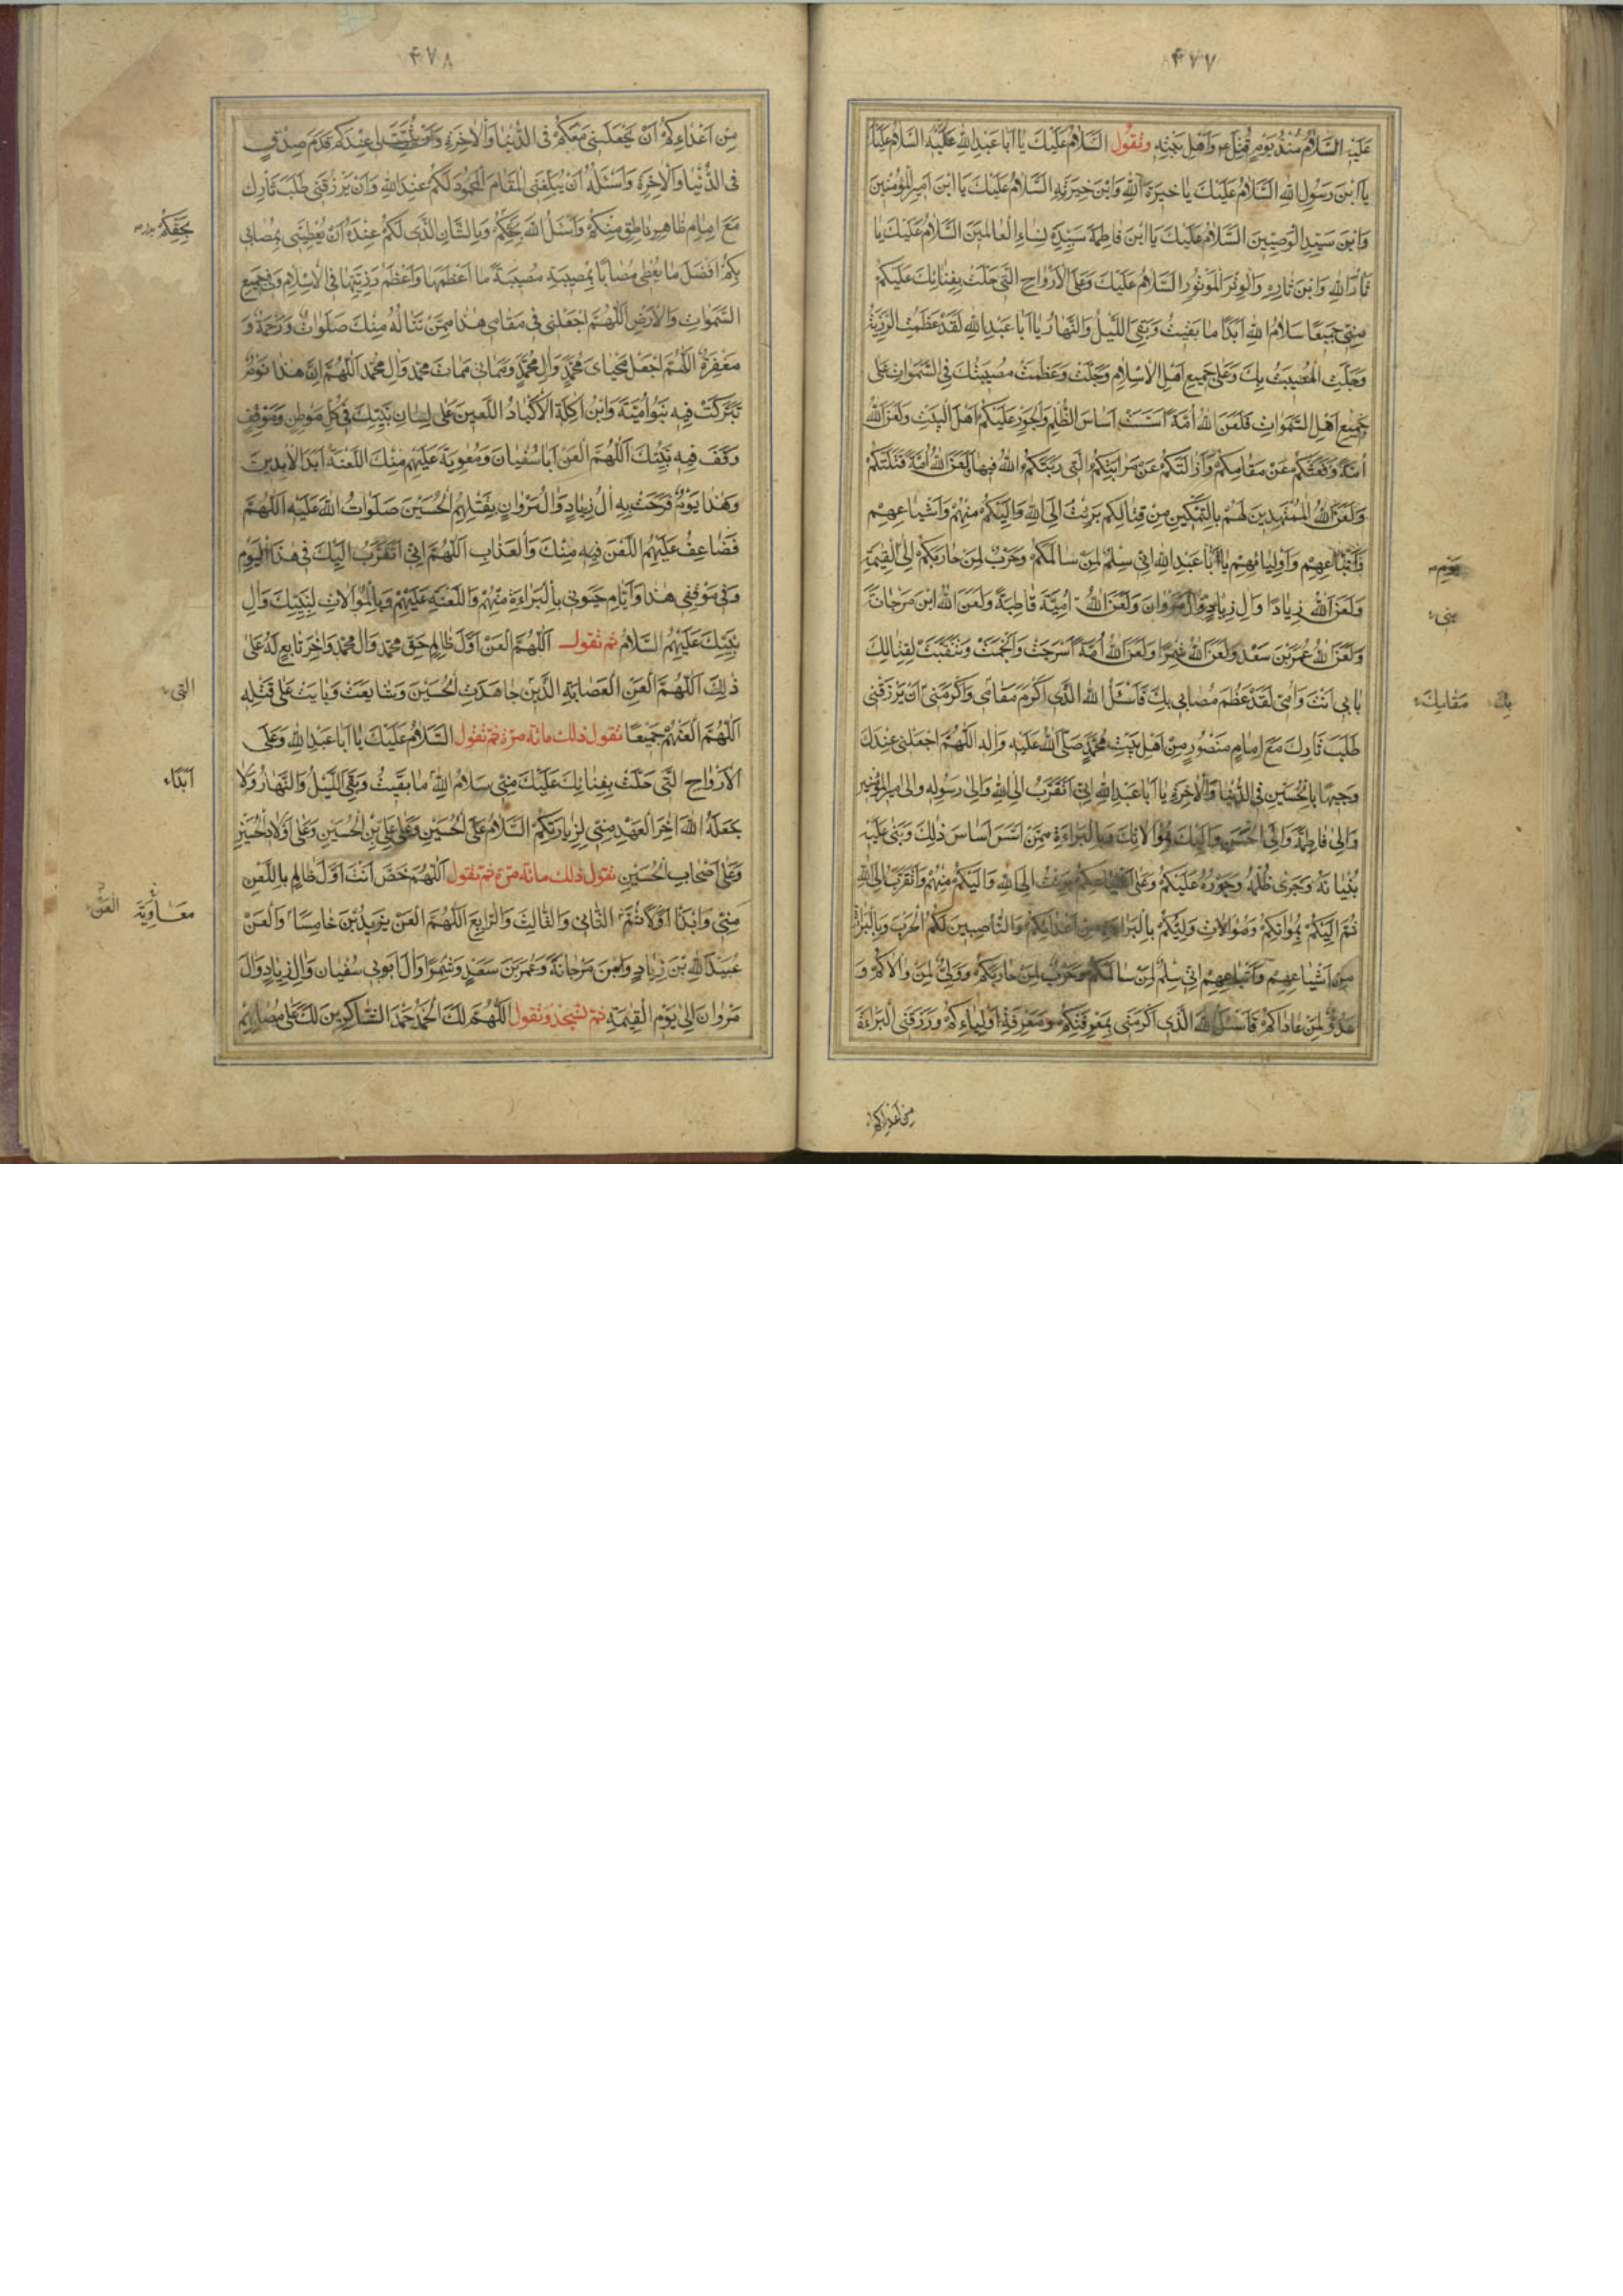 ۴۷۷
عَلَيْهِ السَّلَامُ مُنْذُ يَوْمِ قُتِلَ هو وَاَهْلِ بَيْتِهِ وتقول السَّلَامُ عَلَيْكَ يَا اَبَا عَبْدِ اللهِ عَلَيْهِ السَّلَامُ عَلَيْكَ
يَا ابْنَ رَسُولِ اللهِ السَّلَامُ عَلَيْكَ يَا خِيَرَةَ اللهِ وَابْنَ خِيَرَتِهِ السَّلَامُ عَلَيْكَ يَا ابْنَ اَمِيرِ الْمُؤْمِنِينَ
وَابْنَ سَيِّدِ الْوَصِيِّينَ السَّلَامُ عَلَيْكَ يَا ابْنَ فَاطِمَةَ سَيِّدَةِ نِسَاءِ الْعَالَمِينَ السَّلَامُ عَلَيْكَ يَا
ثَارَ اللهِ وَابْنَ ثَارِهِ وَالْوِتْرَ الْمَوْتُورَ السَّلَامُ عَلَيْكَ وَعَلَى الْاَرْوَاحِ الَّتِي حَلَّتْ بِفِنَائِكَ عَلَيْكُمْ
مِنِّي جَمِيعًا سَلَامُ اللهِ اَبَدًا مَا بَقِيتُ وَبَقِيَ اللَّيْلُ وَالنَّهَارُ يَا اَبَا عَبْدِ اللهِ لَقَدْ عَظُمَتِ الرَّزِيَّةُ
وَجَلَّتِ الْمُصِيبَةُ بِكَ وَعَلَى جَمِيعِ اَهْلِ الْاِسْلَامِ وَجَلَّتْ وَعَظُمَتْ مُصِيبَتُكَ فِي السَّمَوَاتِ عَلَى
جَمِيعِ اَهْلِ السَّمَوَاتِ فَلَعَنَ اللهُ اُمَّةً اَسَّسَتْ اَسَاسَ الظُّلْمِ وَالْجَوْرِ عَلَيْكُمْ اَهْلَ الْبَيْتِ وَلَعَنَ اللهُ
اُمَّةً دَفَعَتْكُمْ عَنْ مَقَامِكُمْ وَاَزَالَتْكُمْ عَنْ مَرَاتِبِكُمُ الَّتِي رَتَّبَكُمُ اللهُ فِيهَا وَلَعَنَ اللهُ اُمَّةً قَتَلَتْكُمْ
وَلَعَنَ اللهُ الْمُمَهِّدِينَ لَهُمْ بِالتَّمْكِينِ مِنْ قِتَالِكُمْ بَرِئْتُ اِلَى اللهِ وَاِلَيْكُمْ مِنْهُمْ وَاَشْيَاعِهِمْ
وَاَتْبَاعِهِمْ وَاَوْلِيَائِهِمْ يَا اَبَا عَبْدِ اللهِ اِنِّي سِلْمٌ لِمَنْ سَالَمَكُمْ وَحَرْبٌ لِمَنْ حَارَبَكُمْ اِلَى الْقِيمَةِ
يَوْمِ
وَلَعَنَ اللهُ زِيَادًا وَالَ زِيَادٍ وَالَ مَرْوَانَ وَلَعَنَ اللهُ اُمَيَّةَ قَاطِبَةً وَلَعَنَ اللهُ ابْنَ مَرْجَانَةَ
بَنِي
وَلَعَنَ اللهُ عُمَرَ بْنَ سَعْدٍ وَلَعَنَ اللهُ شِمْرًا وَلَعَنَ اللهُ اُمَّةً اَسْرَجَتْ وَاَلْجَمَتْ وَتَنَقَّبَتْ لِقِتَالِكَ
بِاَبِي اَنْتَ وَاُمِّي لَقَدْ عَظُمَ مُصَابِي بِكَ فَاَسْئَلُ اللهَ الَّذِي اَكْرَمَ مَقَامِي وَاَكْرَمَنِي اَنْ يَرْزُقَنِي
مَقَامَكَ بِكَ
طَلَبَ ثَارِكَ مَعَ اِمَامٍ مَنْصُورٍ مِنْ اَهْلِ بَيْتِ مُحَمَّدٍ صَلَّى اللهُ عَلَيْهِ وَالِهِ اللّهُمَّ اجْعَلْنِي عِنْدَكَ
وَجِيهًا بِالْحُسَيْنِ فِي الدُّنْيَا وَالْاخِرَةِ يَا اَبَا عَبْدِ اللهِ اِنِّي اَتَقَرَّبُ اِلَى اللهِ وَاِلَى رَسُولِهِ وَاِلَى اَمِيرِ الْمُؤْمِنِينَ
وَاِلَى فَاطِمَةَ وَاِلَى الْحَسَنِ وَاِلَيْكَ بِمُوَالَاتِكَ وَبِالْبَرَاءَةِ مِمَّنْ اَسَّسَ اَسَاسَ ذَلِكَ وَبَنَى عَلَيْهِ
بُنْيَانَهُ وَجَرَى ظُلْمُهُ وَجَوْرُهُ عَلَيْكُمْ وَعَلَى اَشْيَاعِكُمْ بَرِئْتُ اِلَى اللهِ وَاِلَيْكُمْ مِنْهُمْ وَاَتَقَرَّبُ اِلَى اللهِ
ثُمَّ اِلَيْكُمْ بِمُوَالَاتِكُمْ وَمُوَالَاتِ وَلِيِّكُمْ بِالْبَرَاءَةِ مِنْ اَعْدَائِكُمْ وَالنَّاصِبِينَ لَكُمُ الْحَرْبَ وَبِالْبَرَاءَةِ
مِنْ اَشْيَاعِهِمْ وَاَتْبَاعِهِمْ اِنِّي سِلْمٌ لِمَنْ سَالَمَكُمْ وَحَرْبٌ لِمَنْ حَارَبَكُمْ وَوَلِيٌّ لِمَنْ وَالَاكُمْ وَ
عَدُوٌّ لِمَنْ عَادَاكُمْ فَاَسْئَلُ اللهَ الَّذِي اَكْرَمَنِي بِمَعْرِفَتِكُمْ وَمَعْرِفَةِ اَوْلِيَاءِكُمْ وَرَزَقَنِي الْبَرَاءَةَ
من اعداءكم
۴۷۸
مِنْ اَعْدَاءِكُمْ اَنْ يَجْعَلَنِي مَعَكُمْ فِي الدُّنْيَا وَالْاخِرَةِ وَاَنْ يُثَبِّتَ لِي عِنْدَكُمْ قَدَمَ صِدْقٍ
فِي الدُّنْيَا وَالْاخِرَةِ وَاَسْئَلُهُ اَنْ يُبَلِّغَنِي الْمَقَامَ الْمَحْمُودَ لَكُمْ عِنْدَ اللهِ وَاَنْ يَرْزُقَنِي طَلَبَ ثَارِكَ
مَعَ اِمَامٍ ظَاهِرٍ نَاطِقٍ مِنْكُمْ وَاَسْئَلُ اللهَ بِحَقِّكُمْ وَبِالشَّانِ الَّذِي لَكُمْ عِنْدَهُ اَنْ يُعْطِيَنِي بِمُصَابِي
بِحَقِّكُمْ
بِكُمْ اَفْضَلَ مَا يُعْطِي مُصَابًا بِمُصِيبَةٍ مُصِيبَةً مَا اَعْظَمَهَا وَاَعْظَمَ رَزِيَّتَهَا فِي الْاِسْلَامِ وَفِي جَمِيعِ
السَّمَوَاتِ وَالْاَرْضِ اَللّهُمَّ اجْعَلْنِي فِي مَقَامِي هَذَا مِمَّنْ تَنَالُهُ مِنْكَ صَلَوَاتٌ وَرَحْمَةٌ وَ
مَغْفِرَةٌ اَللّهُمَّ اجْعَلْ مَحْيَايَ مَحْيَا مُحَمَّدٍ وَالِ مُحَمَّدٍ وَمَمَاتِي مَمَاتَ مُحَمَّدٍ وَالِ مُحَمَّدٍ اَللّهُمَّ اِنَّ هَذَا يَوْمٌ
تَبَرَّكَتْ فِيهِ بَنُو اُمَيَّةَ وَابْنُ اكِلَةِ الْاَكْبَادِ اللَّعِينَ عَلَى لِسَانِ نَبِيِّكَ فِي كُلِّ مَوْطِنٍ وَمَوْقِفٍ
وَقَفَ فِيهِ نَبِيُّكَ اَللّهُمَّ الْعَنْ اَبَا سُفْيَانَ وَمُعَوِيَةَ عَلَيْهِمْ مِنْكَ اللَّعْنَةُ اَبَدَ الْابِدِينَ
وَهَذَا يَوْمٌ فَرِحَتْ بِهِ الُ زِيَادٍ وَالُ مَرْوَانٍ بِقَتْلِهِمُ الْحُسَيْنَ صَلَوَاتُ اللهِ عَلَيْهِ اَللّهُمَّ
فَضَاعِفْ عَلَيْهِمُ اللَّعْنَ فِيهِ مِنْكَ وَالْعَذَابَ اَللّهُمَّ اِنِّي اَتَقَرَّبُ اِلَيْكَ فِي هَذَا الْيَوْمِ
وَفِي مَوْقِفِي هَذَا وَاَيَّامِ حَيَوتِي بِالْبَرَاءَةِ مِنْهُمْ وَاللَّعْنَةِ عَلَيْهِمْ وَبِالْمُوَالَاتِ لِنَبِيِّكَ وَالِ
نَبِيِّكَ عَلَيْهِمُ السَّلَامُ ثم تقول اَللّهُمَّ الْعَنْ اَوَّلَ ظَالِمٍ حَقَّ مُحَمَّدٍ وَالِ مُحَمَّدٍ وَاخِرَ تَابِعٍ لَهُ عَلَى
ذَلِكَ اَللّهُمَّ الْعَنِ الْعِصَابَةِ الَّذِينَ جَاهَدَتِ الْحُسَيْنَ وَشَايَعَتْ وَبَايَعَتْ عَلَى قَتْلِهِ
التي
اَللّهُمَّ الْعَنْهُمْ جَمِيعًا تقول ذلك مائة مرة ثم تقول السَّلَامُ عَلَيْكَ يَا اَبَا عَبْدِ اللهِ وَعَلَى
الْاَرْوَاحِ الَّتِي حَلَّتْ بِفِنَائِكَ عَلَيْكَ مِنِّي سَلَامُ اللهِ مَا بَقِيتُ وَبَقِيَ اللَّيْلُ وَالنَّهَارُ وَلَا
اَبَدًا
يَجْعَلُهُ اللهُ اخِرَ الْعَهْدِ مِنِّي لِزِيَارَتِكُمْ السَّلَامُ عَلَى الْحُسَيْنِ وَعَلَى عَلِيِّ بْنِ الْحُسَيْنِ وَعَلَى اَوْلَادِ الْحُسَيْنِ
وَعَلَى اَصْحَابِ الْحُسَيْنِ تقول ذلك مائة مرة ثم تقول اَللّهُمَّ خُصَّ اَنْتَ اَوَّلَ ظَالِمٍ بِاللَّعْنِ
مِنِّي وَابْدَا اَوَّلًا ثُمَّ الثَّانِي وَالثَّالِثَ وَالرَّابِعَ اَللّهُمَّ الْعَنْ يَزِيدَ بْنَ خَامِسًا وَالْعَنْ
مَعَاوِيَةَ الْعَنْ
عُبَيْدَ اللهِ بْنَ زِيَادٍ وَابْنَ مَرْجَانَةَ وَعُمَرَ بْنَ سَعْدٍ وَشِمْرًا وَالَ اَبِي سُفْيَانَ وَالَ زِيَادٍ وَالَ
مَرْوَانَ اِلَى يَوْمِ الْقِيمَةِ ثم تسجد وتقول اَللّهُمَّ لَكَ الْحَمْدُ حَمْدَ الشَّاكِرِينَ لَكَ عَلَى مُصَابِهِمْ